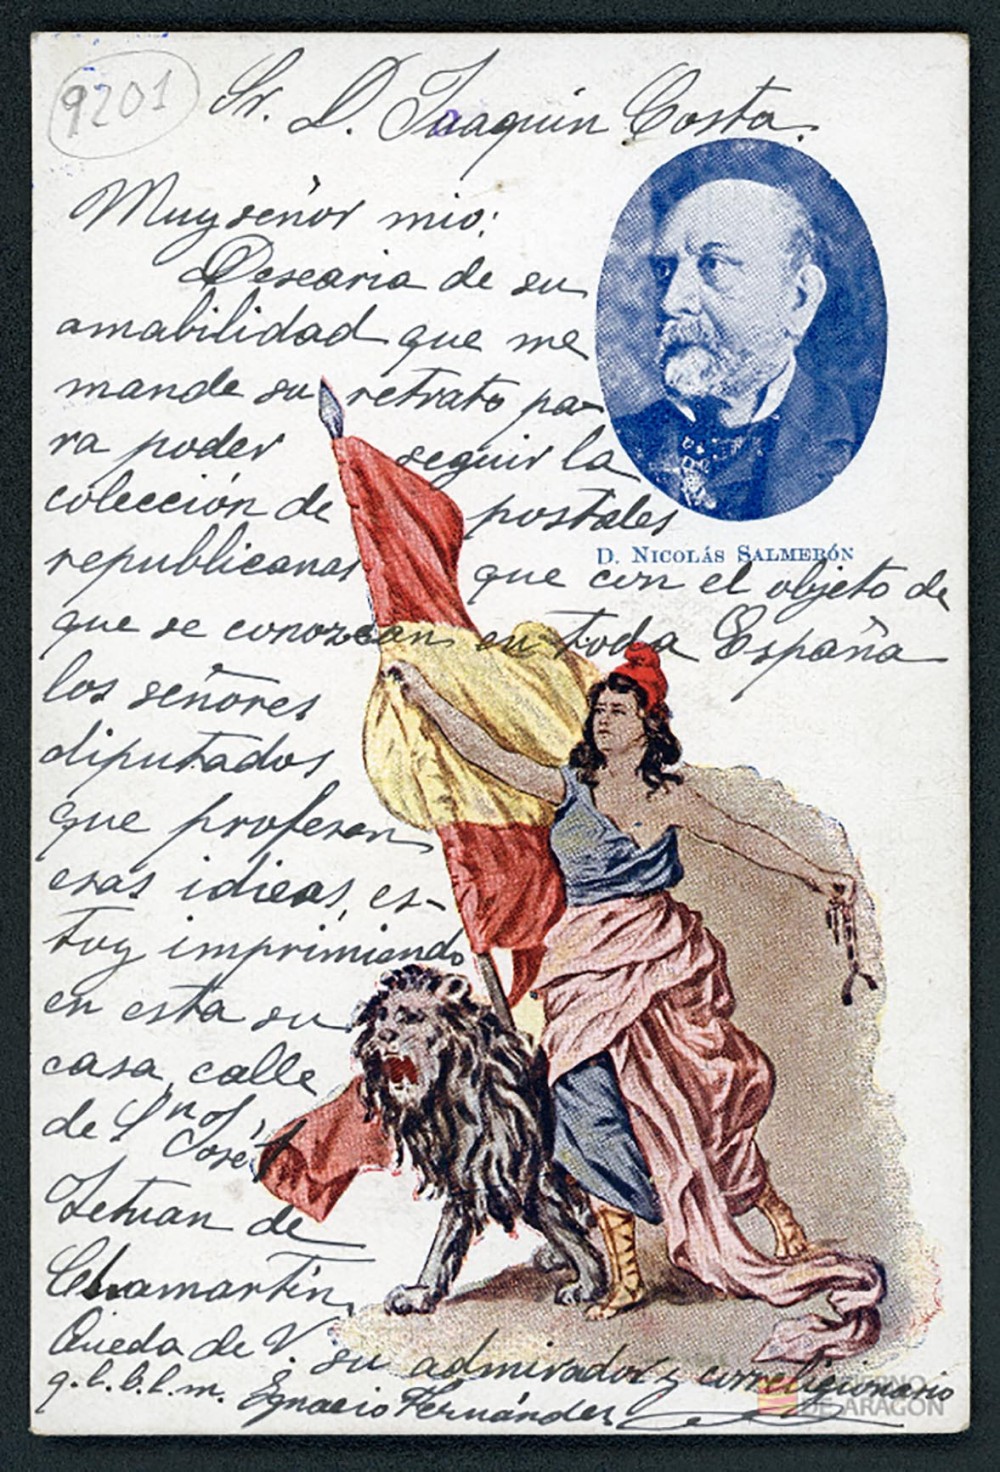 9201
Sr. D. Joaquin Costa.
Muy señor mio:
Desearia de su
amabilidad que me
mande su retrato pa-
ra poder seguir la
colección de postales
republicanas que con el objeto de
que se conozcan en toda España
los señores
diputados
que profesan
esas idieas, es-
toy imprimiendo
en esta su
casa, calle
de Sn José,
Tetuan de
Chamartín,
Queda de V. su admirador y correligionario
q. l. b. l. m. Ignacio Fernández
D. Nicolás Salmerón
GOBIERNO
DE ARAGON